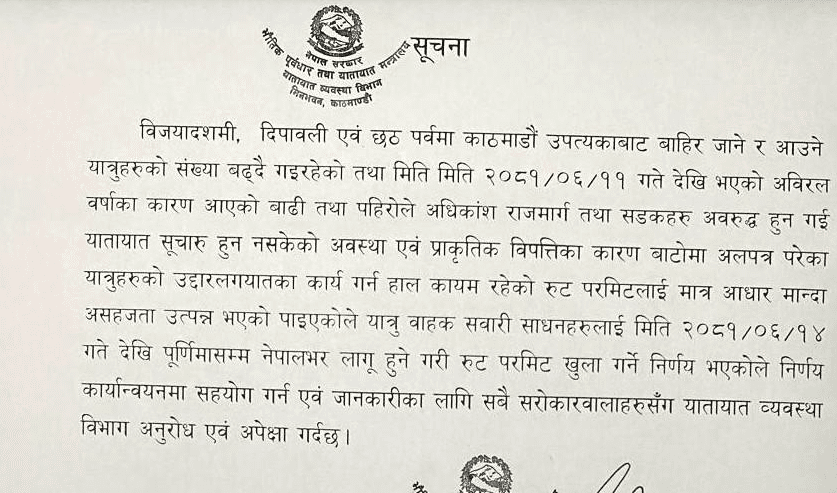 नेपाल सरकार
भौतिक पूर्वधार तथा यातायात मन्त्रालय
यातायात व्यवस्था विभाग
मिनभवन, काठमाण्डौ
सूचना
विजयादशमी, दिपावली एवं छठ पर्वमा काठमाडौं उपत्यकाबाट बाहिर जाने र आउने
यात्रुहरुको संख्या बढ्दै गइरहेको तथा मिति मिति २०८१/०६/११ गते देखि भएको अविरल
वर्षाका कारण आएको बाढी तथा पहिरोले अधिकांश राजमार्ग तथा सडकहरु अवरुद्ध हुन गई
यातायात सूचारु हुन नसकेको अवस्था एवं प्राकृतिक विपत्तिका कारण बाटोमा अलपत्र परेका
यात्रुहरुको उद्दारलगयातका कार्य गर्न हाल कायम रहेको रुट परमिटलाई मात्र आधार मान्दा
असहजता उत्पन्न भएको पाइएकोले यात्रु वाहक सवारी साधनहरुलाई मिति २०८१/०६/१४
गते देखि पूर्णिमासम्म नेपालभर लागू हुने गरी रुट परमिट खुला गर्ने निर्णय भएकोले निर्णय
कार्यान्वयनमा सहयोग गर्न एवं जानकारीका लागि सबै सरोकारवालाहरुसँग यातायात व्यवस्था
विभाग अनुरोध एवं अपेक्षा गर्दछ।